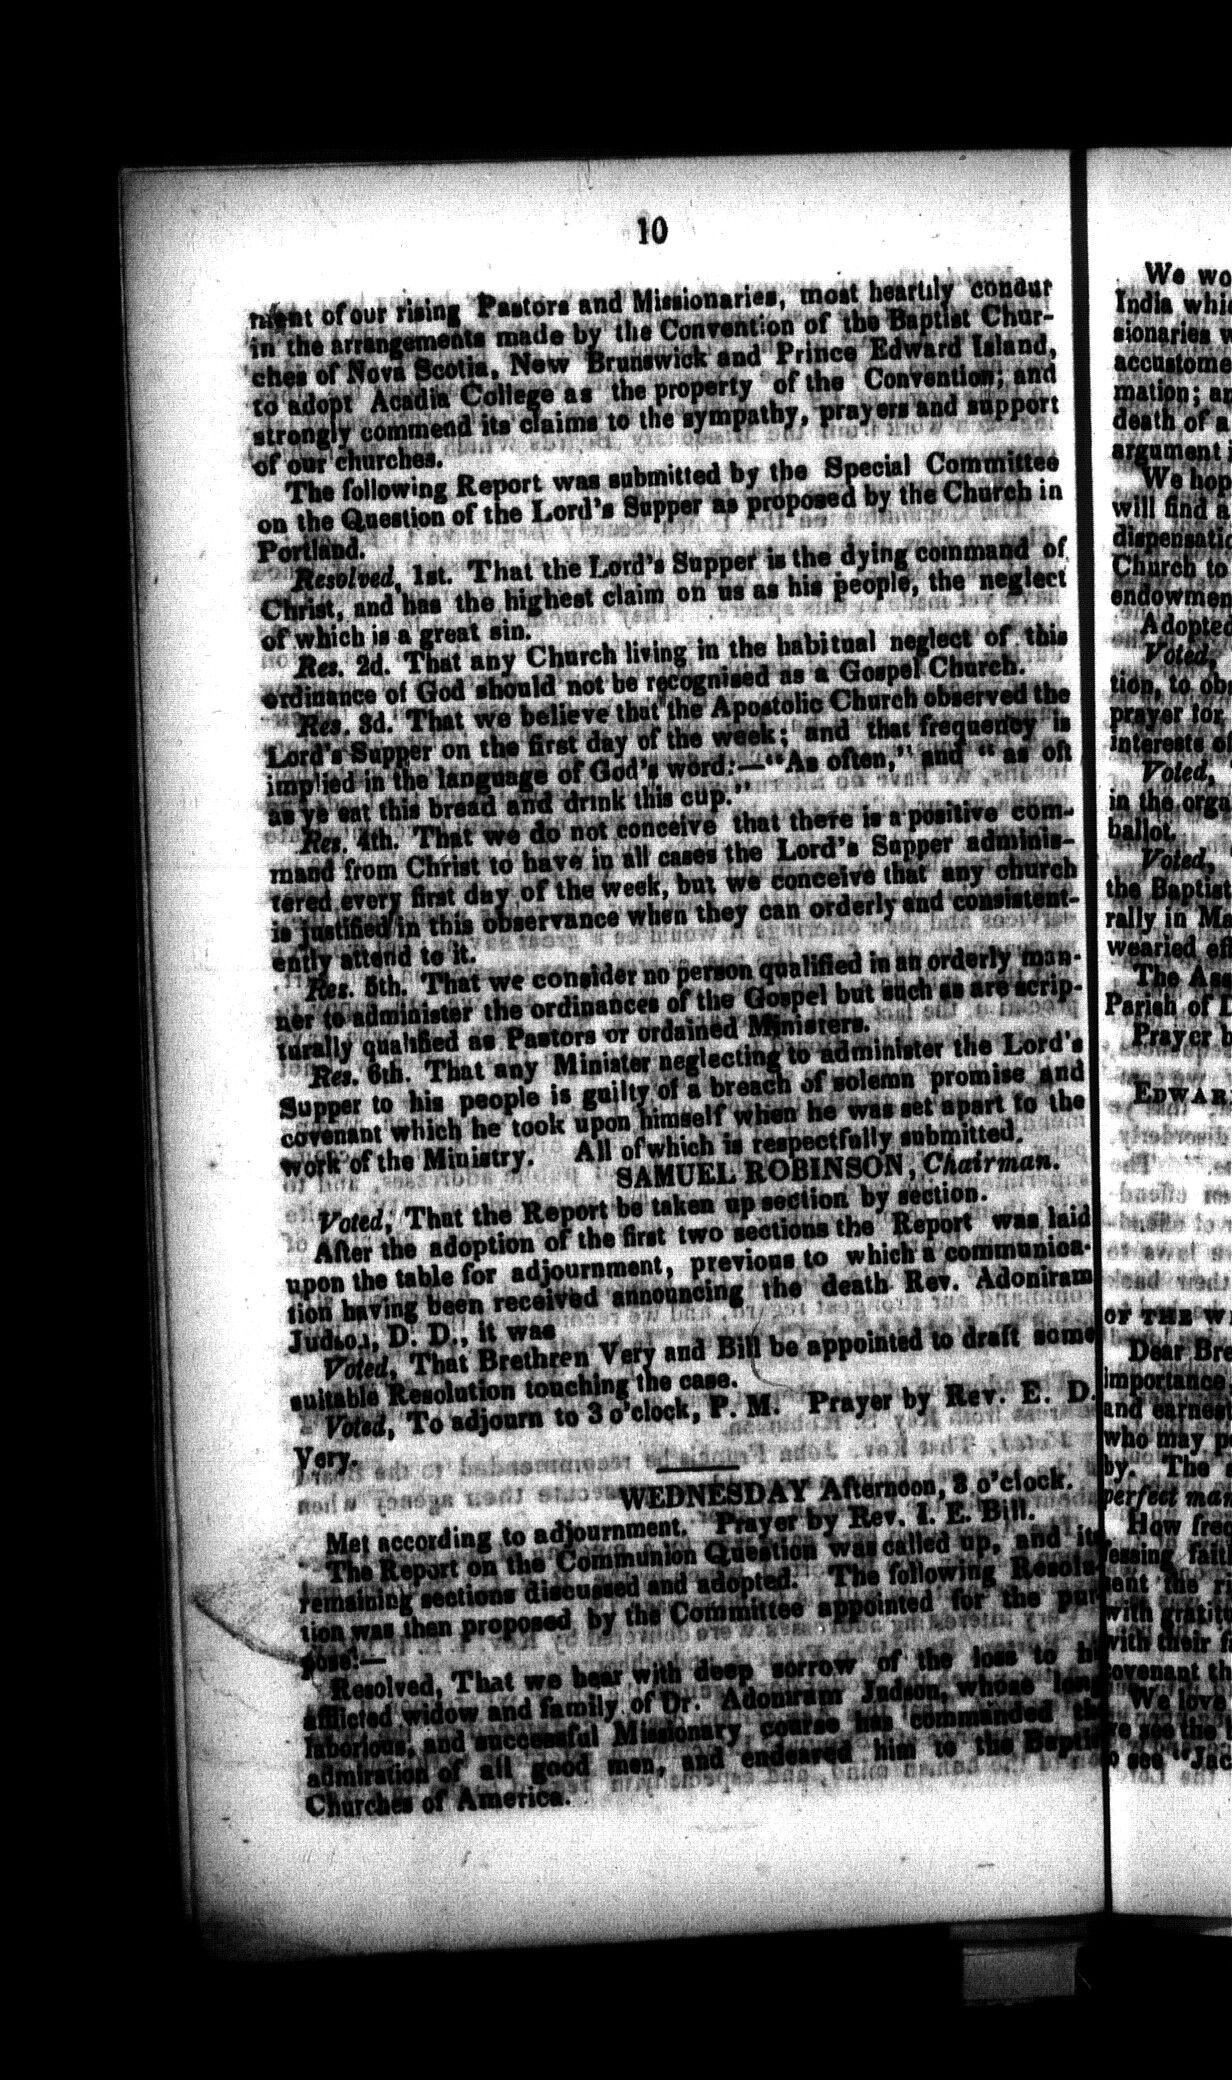 10
ment of our rising Pastors and Missionaries, most heartily concur
in the arrangements made by the Convention of the Baptist Chur-
ches of Nova Scotia, New Brunswick and Prince Edward Island,
to adopt Acadia College as the property of the Convention; and
strongly commend its claims to the sympathy, prayers and support
of our churches.
The following Report was submitted by the Special Committee
on the Question of the Lord's Supper as proposed by the Church in
Portland.
Resolved, 1st. That the Lord's Supper is the dying command of
Christ, and has the highest claim on us as his people, the neglect
of which is a great sin.
Res. 2d. That any Church living in the habitual neglect of this
ordinance of God should not be recognised as a Gospel Church.
Res. 3d. That we believe that the Apostolic Church observed the
Lord's Supper on the first day of the week; and that frequency is
implied in the language of God's word:—"As often," and "as oft
as ye eat this bread and drink this cup."
Res. 4th. That we do not conceive that there is a positive com-
mand from Christ to have in all cases the Lord's Supper adminis-
tered every first day of the week, but we conceive that any church
is justified in this observance when they can orderly and consistent-
ently attend to it.
Res. 5th. That we consider no person qualified in an orderly man-
ner to administer the ordinances of the Gospel but such as are scrip-
turally qualified as Pastors or ordained Ministers.
Res. 6th. That any Minister neglecting to administer the Lord's
Supper to his people is guilty of a breach of solemn promise and
covenant which he took upon himself when he was set apart to the
work of the Ministry. All of which is respectfully submitted.
SAMUEL ROBINSON, Chairman.
Voted, That the Report be taken up section by section.
After the adoption of the first two sections the Report was laid
upon the table for adjournment, previous to which a communica-
tion having been received announcing the death Rev. Adoniram
Judson, D. D., it was
Voted, That Brethren Very and Bill be appointed to draft some
suitable Resolution touching the case.
Voted, To adjourn to 3 o'clock, P. M. Prayer by Rev. E. D.
Very.
WEDNESDAY Afternoon, 3 o'clock.
Met according to adjournment. Prayer by Rev. I. E. Bill.
The Report on the Communion Question was called up, and its
remaining sections discussed and adopted. The following Resolu-
tion was then proposed by the Committee appointed for the pur-
pose:—
Resolved, That we hear with deep sorrow of the loss to hi
afflicted widow and family of Dr. Adoniram Judson, whose long
laborious, and successful Missionary course has commanded th
admiration of all good men, and endeared him to the Baptis
Churches of America.
We wo
India whi
sionaries w
accustome
mation; an
death of a
argument i
We hop
will find a
dispensatio
Church to
endowmen
Adopted
Voted,
tion, to obs
prayer for
interests of
Voted,
in the orga
ballot.
Voted,
the Baptist
rally in Ma
wearied
The Ass
Parish of
Prayer b
EDWAR
OF THE W
Dear Bre
importance
and earnest
who may p
by. The
perfect man
How fre
fessing fait
sent the ri
with grati
with their f
ovenant th
We love
see the
see "Jac